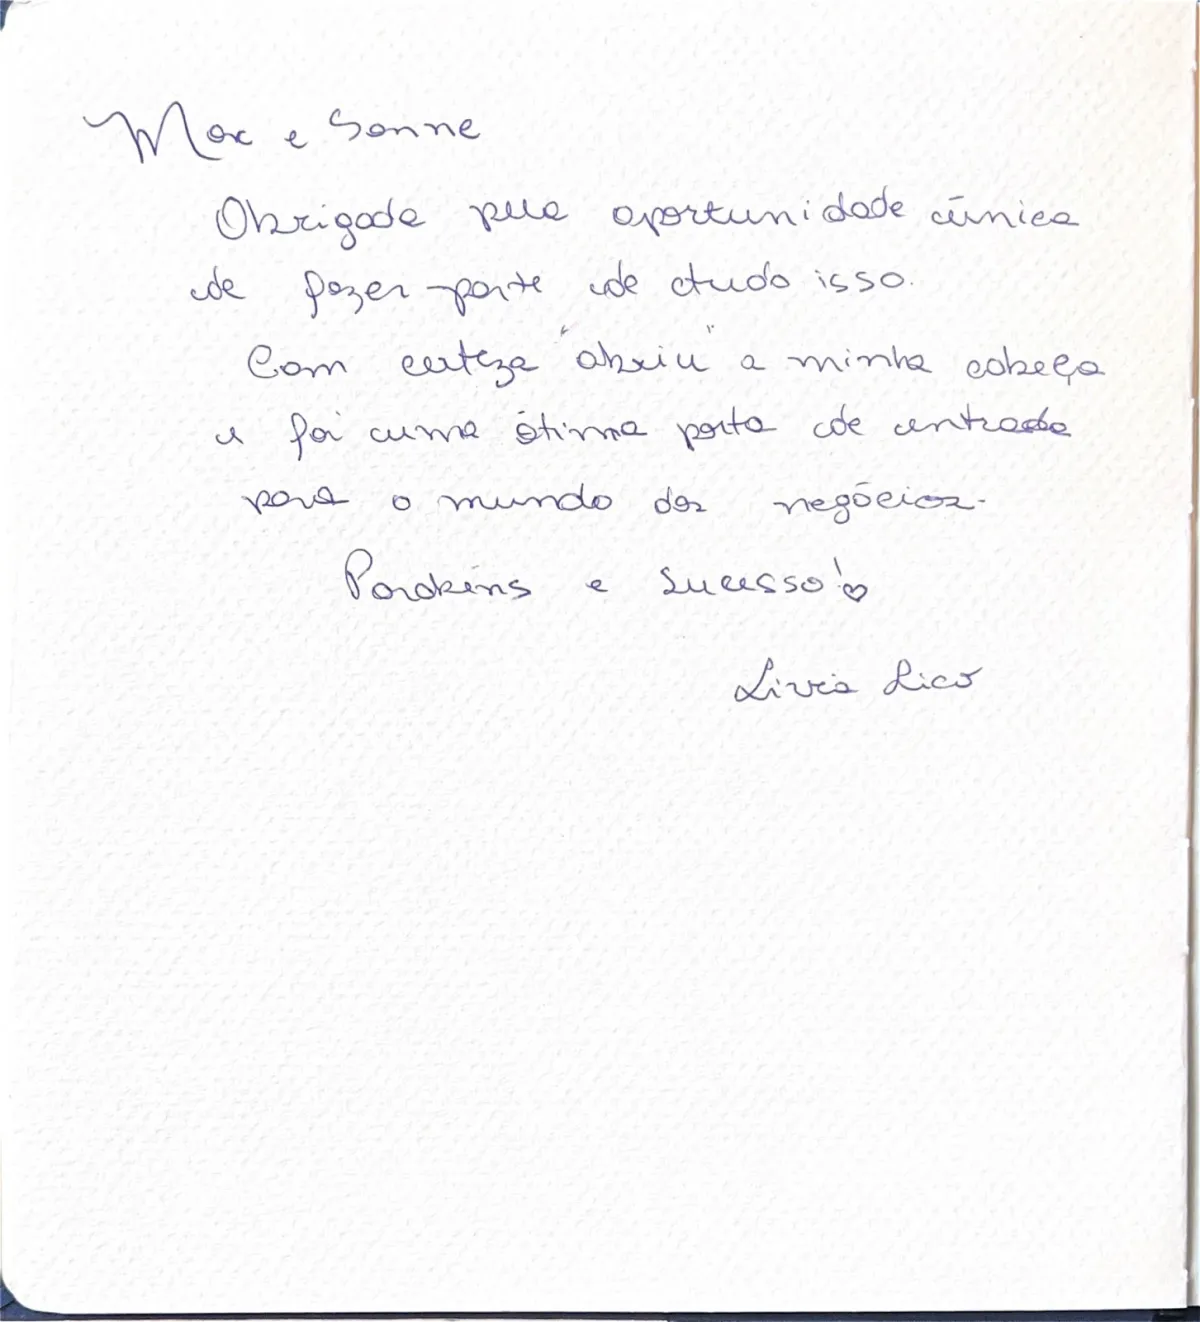 Max e Sonne
Obrigada pela oportunidade única
de fazer parte de tudo isso.
Com certeza "abriu" a minha cabeça
e foi uma ótima porta de entrada
para o mundo dos negócios.
Parabéns e sucesso! ♡
Livia Lico